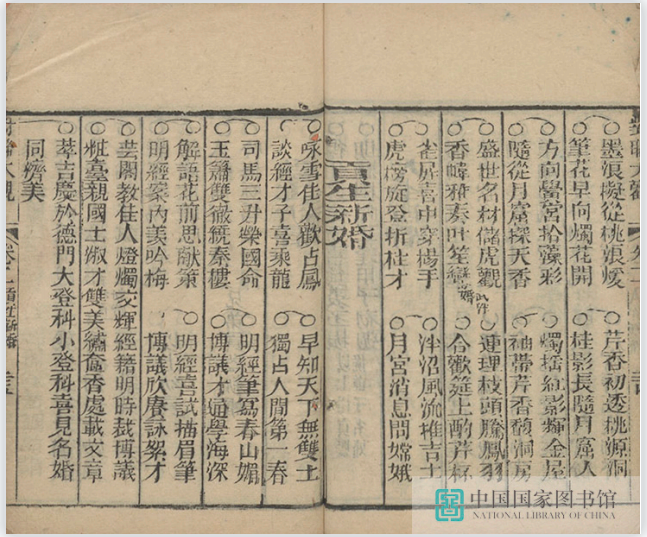 墨浪擬從桃浪煖　芹香初透桃源洞
筆花早向燭花開　桂影長隨月窟人
方向黌宮拾藻彩　燭搖紅影輝金屋
隨從月窟探天香　袖帶芹香馥洞房
盛世名材儲虎觀　連理枝頭騰鳳羽
香幃雅奏叶笙　合歡筵上酌芹杯
雀屏喜中穿楊手　泮沼風流推吉士
虎榜旋登折桂才　月宮消息問嫦娥
貢生新婚
咏雪佳人歡占鳳　早知天下無雙士
談經才子喜乘龍　獨占人間第一春
司馬三升榮國命　明經筆寫春山媚
玉簫雙徹統秦樓　博議才通學海深
解語花前思献策　明經喜試描眉筆
明經案內美吟梅　博議欣賡詠絮才
芸閣教佳人燈燭交輝經籍明時裁博議
粧臺親國士淑才雙美繡奩香處載文章
萃吉慶於德門大登科小登科喜見名婚
同濟美
中国国家图书馆
NATIONAL LIBRARY OF CHINA